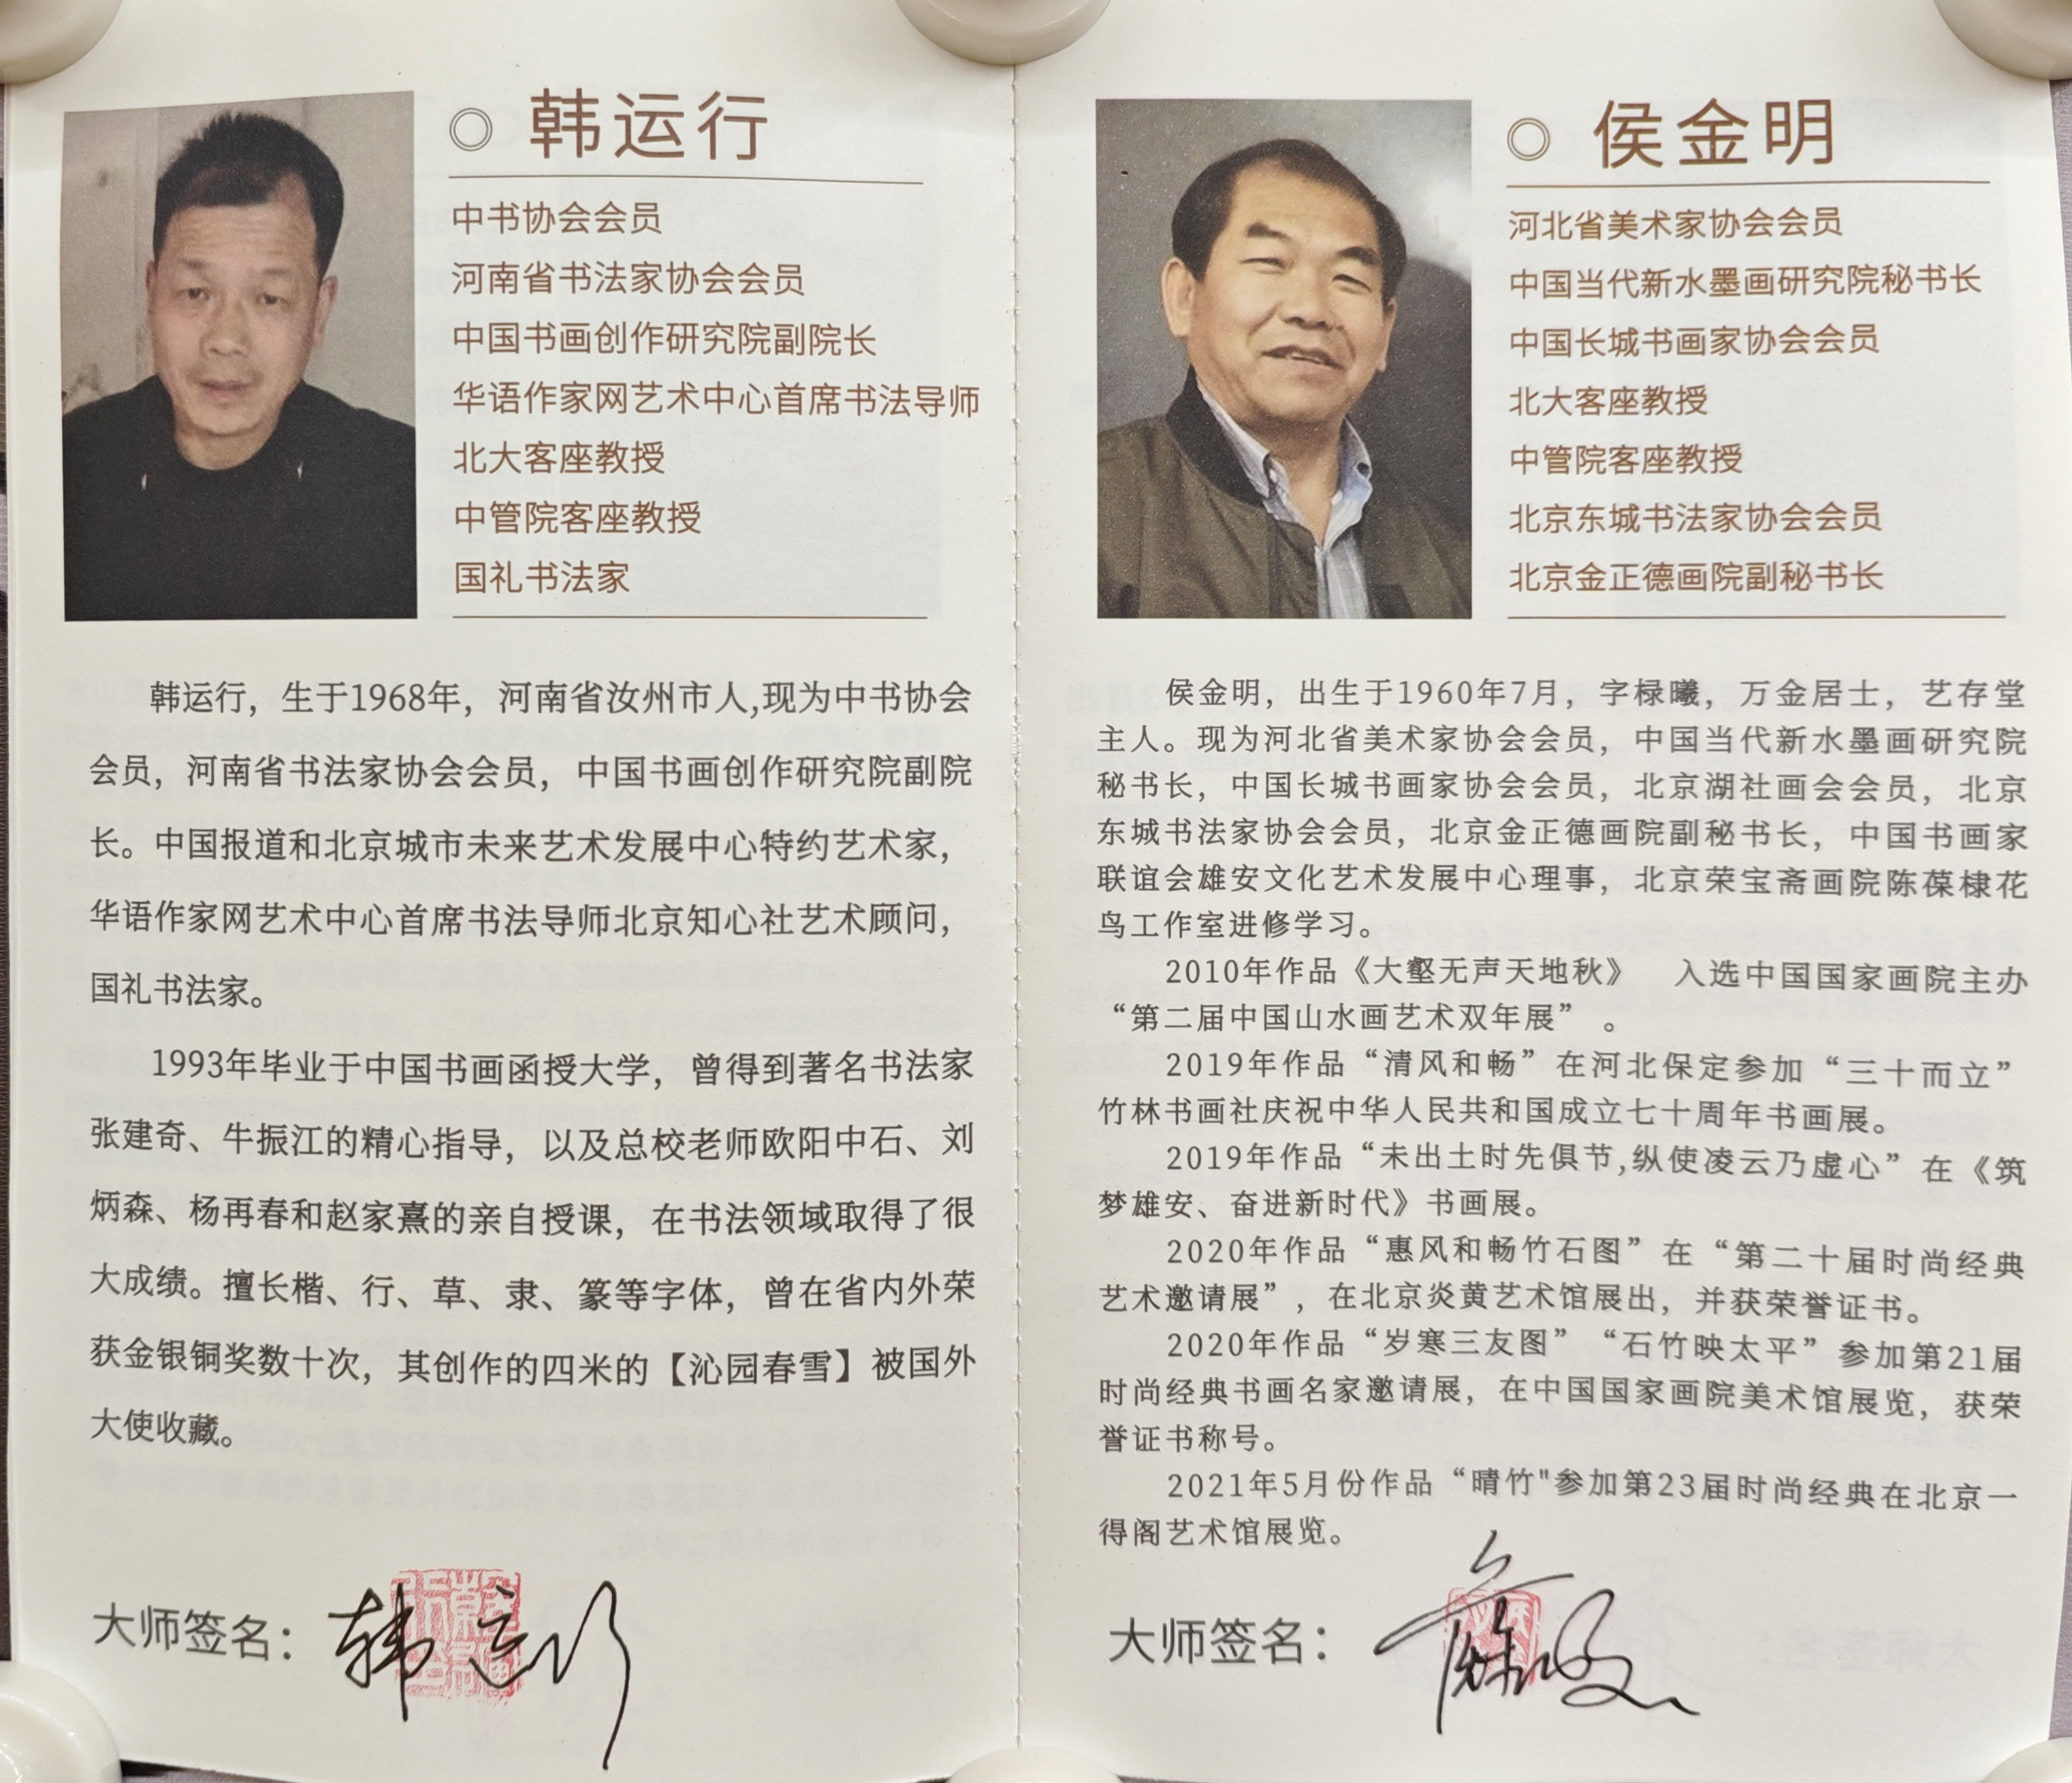 韩运行
中书协会会员
河南省书法家协会会员
中国书画创作研究院副院长
华语作家网艺术中心首席书法导师
北大客座教授
中管院客座教授
国礼书法家
韩运行，生于1968年，河南省汝州市人,现为中书协会
会员，河南省书法家协会会员，中国书画创作研究院副院
长。中国报道和北京城市未来艺术发展中心特约艺术家，
华语作家网艺术中心首席书法导师北京知心社艺术顾问，
国礼书法家。
1993年毕业于中国书画函授大学，曾得到著名书法家
张建奇、牛振江的精心指导，以及总校老师欧阳中石、刘
炳森、杨再春和赵家熹的亲自授课，在书法领域取得了很
大成绩。擅长楷、行、草、隶、篆等字体，曾在省内外荣
获金银铜奖数十次，其创作的四米的【沁园春雪】被国外
大使收藏。
大师签名：韩运行
侯金明
河北省美术家协会会员
中国当代新水墨画研究院秘书长
中国长城书画家协会会员
北大客座教授
中管院客座教授
北京东城书法家协会会员
北京金正德画院副秘书长
侯金明，出生于1960年7月，字椂曦，万金居士，艺存堂
主人。现为河北省美术家协会会员，中国当代新水墨画研究院
秘书长，中国长城书画家协会会员，北京湖社画会会员，北京
东城书法家协会会员，北京金正德画院副秘书长，中国书画家
联谊会雄安文化艺术发展中心理事，北京荣宝斋画院陈葆棣花
鸟工作室进修学习。
2010年作品《大壑无声天地秋》 入选中国国家画院主办
“第二届中国山水画艺术双年展” 。
2019年作品“清风和畅”在河北保定参加“三十而立”
竹林书画社庆祝中华人民共和国成立七十周年书画展。
2019年作品“未出土时先俱节,纵使凌云乃虚心”在《筑
梦雄安、奋进新时代》书画展。
2020年作品“惠风和畅竹石图”在“第二十届时尚经典
艺术邀请展”，在北京炎黄艺术馆展出，并获荣誉证书。
2020年作品“岁寒三友图”“石竹映太平”参加第21届
时尚经典书画名家邀请展，在中国国家画院美术馆展览，获荣
誉证书称号。
2021年5月份作品“晴竹"参加第23届时尚经典在北京一
得阁艺术馆展览。
大师签名：